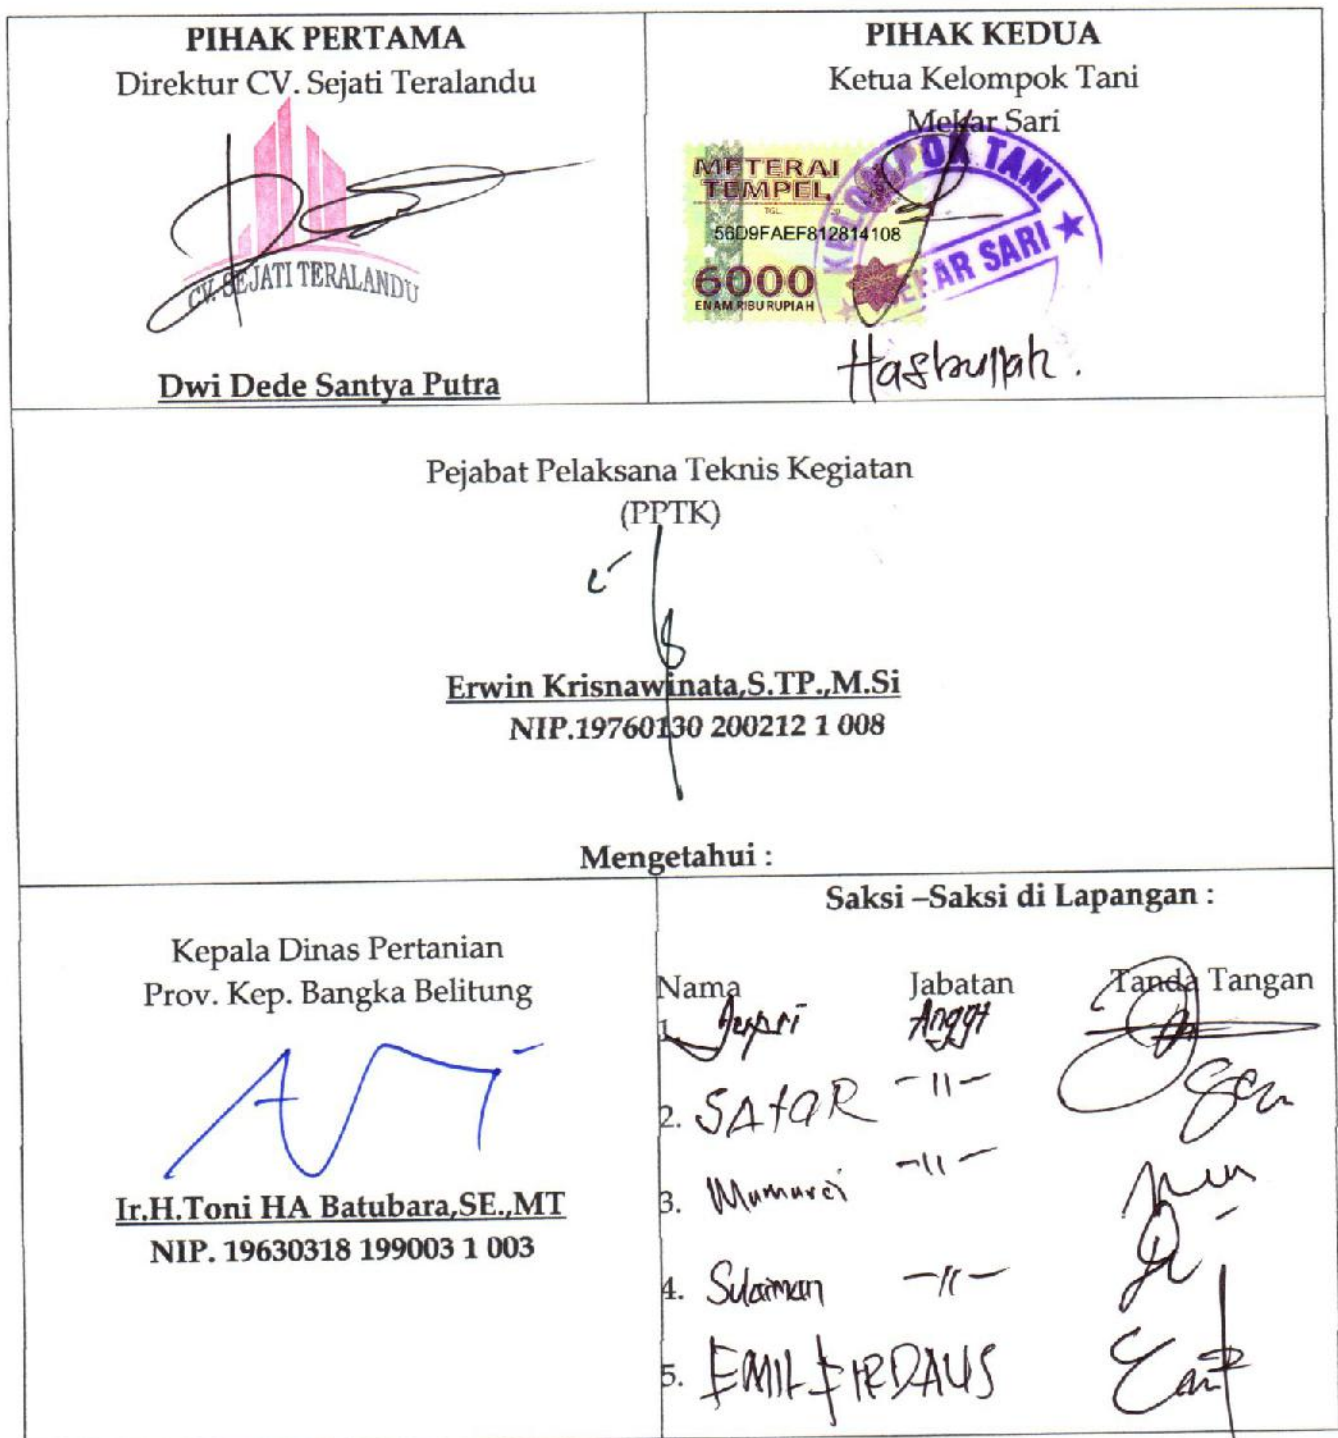 PIHAK PERTAMA
Direktur CV. Sejati Teralandu
CV. SEJATI TERALANDU
Dwi Dede Santya Putra
PIHAK KEDUA
Ketua Kelompok Tani
Mekar Sari
METERAI
TEMPEL
TGL. 20
56D9FAEF812814108
6000
ENAM RIBU RUPIAH
KELOMPOK TANI
MEKAR SARI
Hasbullah.
Pejabat Pelaksana Teknis Kegiatan
(PPTK)
Erwin Krisnawinata,S.TP.,M.Si
NIP.19760130 200212 1 008
Mengetahui :
Kepala Dinas Pertanian
Prov. Kep. Bangka Belitung
Ir.H.Toni HA Batubara,SE.,MT
NIP. 19630318 199003 1 003
Saksi –Saksi di Lapangan :
Nama Jabatan Tanda Tangan
1. Anggt
2. SAfaR -11-
3. -11-
4. Sulaiman -11-
5. EMIL FIRDAUS